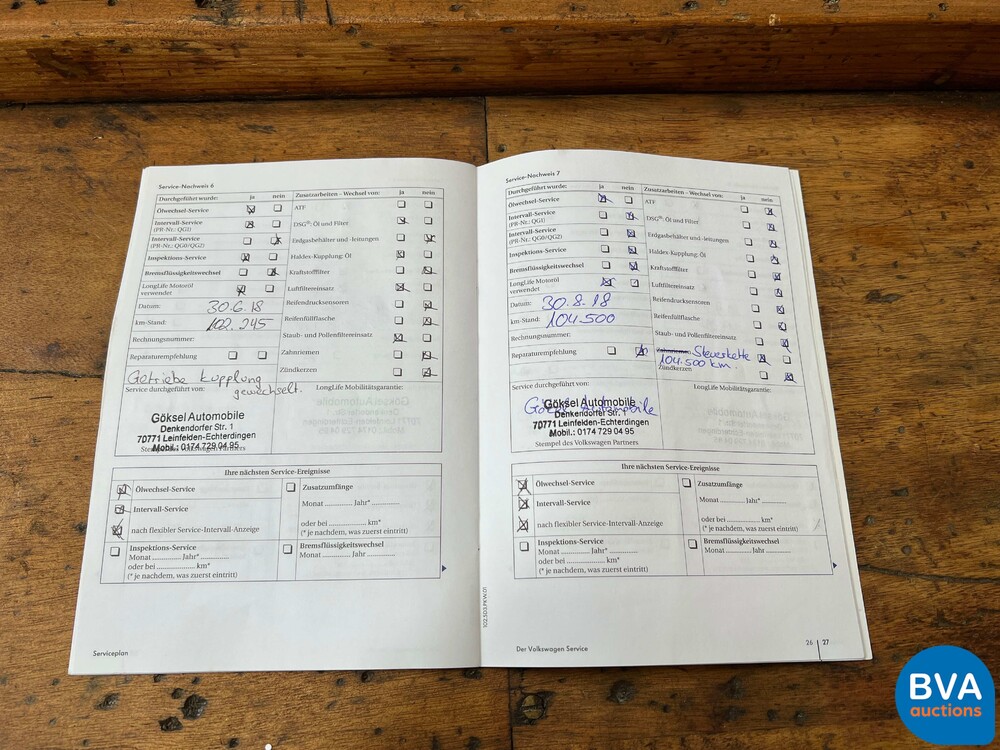 Service-Nachweis 6
Durchgeführt wurde: ja nein Zusatzarbeiten - Wechsel von: ja nein
Ölwechsel-Service ATF
Intervall-Service DSG®: Öl und Filter
(PR-Nr.: QG1)
Intervall-Service Erdgasbehälter und -leitungen
(PR-Nr.: QG0/QG2)
Inspektions-Service Haldex-Kupplung: Öl
Bremsflüssigkeitswechsel Kraftstofffilter
LongLife Motoröl Luftfiltereinsatz
verwendet
Datum: 30.6.18 Reifendrucksensoren
km-Stand: 102.245 Reifenfüllflasche
Rechnungsnummer: Staub- und Pollenfiltereinsatz
Reparaturempfehlung Zahnriemen
Zündkerzen
Getriebe Kupplung
gewechselt.
Service durchgeführt von: LongLife Mobilitätsgarantie:
Göksel Automobile
Denkendorfer Str. 1
70771 Leinfelden-Echterdingen
Mobil.: 0174 729 04 95
Stempel des Volkswagen Partners
Ihre nächsten Service-Ereignisse
Ölwechsel-Service Zusatzumfänge
Intervall-Service Monat Jahr*
nach flexibler Service-Intervall-Anzeige oder bei km*
(* je nachdem, was zuerst eintritt)
Inspektions-Service Bremsflüssigkeitswechsel
Monat Jahr* Monat Jahr
oder bei km*
(* je nachdem, was zuerst eintritt)
Serviceplan
Service-Nachweis 7
Durchgeführt wurde: ja nein Zusatzarbeiten - Wechsel von: ja nein
Ölwechsel-Service ATF
Intervall-Service DSG®: Öl und Filter
(PR-Nr.: QG1)
Intervall-Service Erdgasbehälter und -leitungen
(PR-Nr.: QG0/QG2)
Inspektions-Service Haldex-Kupplung: Öl
Bremsflüssigkeitswechsel Kraftstofffilter
LongLife Motoröl Luftfiltereinsatz
verwendet
Datum: 30.8.18 Reifendrucksensoren
km-Stand: 104.500 Reifenfüllflasche
Rechnungsnummer: Staub- und Pollenfiltereinsatz
Reparaturempfehlung Zahnriemen Steuerkette
104.500 km.
Zündkerzen
Service durchgeführt von: LongLife Mobilitätsgarantie:
Göksel Automobile
Göksel Automobile
Denkendorfer Str. 1
70771 Leinfelden-Echterdingen
Mobil.: 0174 729 04 95
Stempel des Volkswagen Partners
Ihre nächsten Service-Ereignisse
Ölwechsel-Service Zusatzumfänge
Intervall-Service Monat Jahr*
nach flexibler Service-Intervall-Anzeige oder bei km*
(* je nachdem, was zuerst eintritt)
Inspektions-Service Bremsflüssigkeitswechsel
Monat Jahr* Monat Jahr
oder bei km*
(* je nachdem, was zuerst eintritt)
102.5D3.PKW.01
Der Volkswagen Service 26 27
BVA
auctions